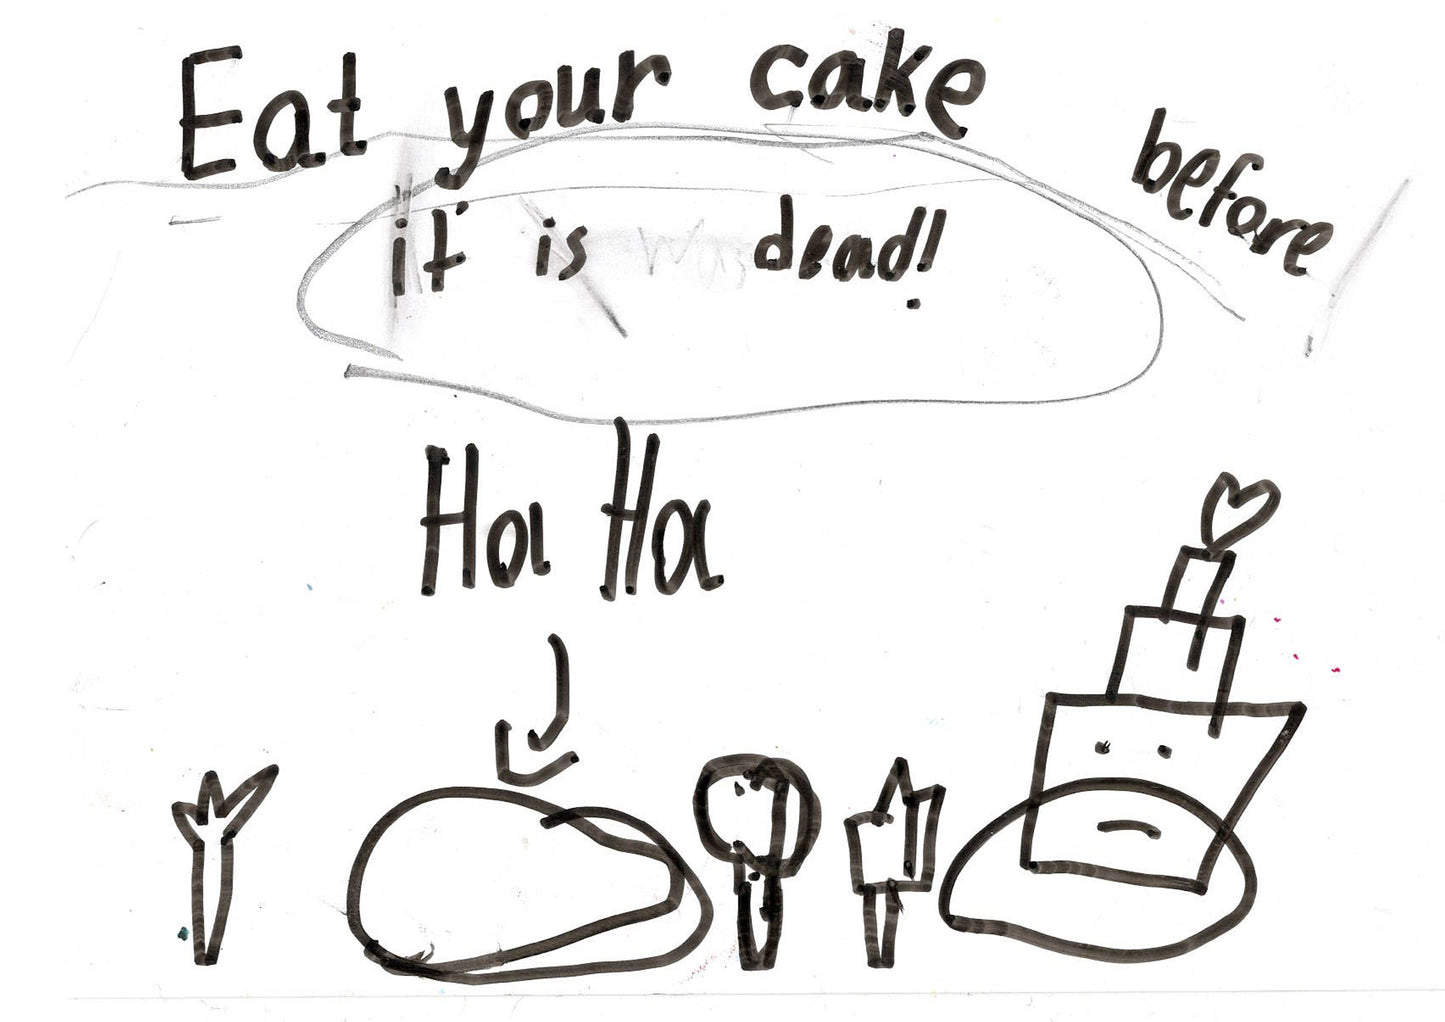 Eat your cake before
it is dead!
Ha Ha